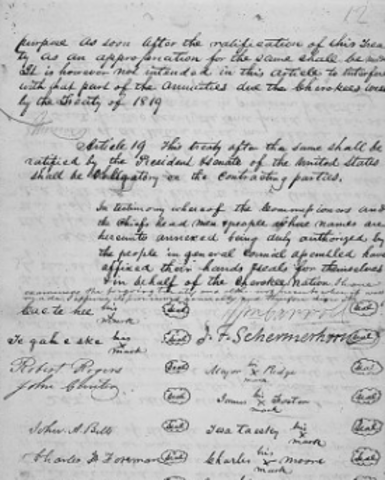 12
purpose as soon after the ratification of this Trea
ty as an appropriation for the same shall be made
It is however not intended in this article to interfere
with that part of the annuities due the Cherokees west
by the Treaty of 1819
Article 19 This treaty after the same shall be
ratified by the President & Senate of the United States
shall be obligatory on the contracting parties.
In testimony whereof the Commissioners and
the chiefs head men & people whose names are
hereunto annexed being duly authorized by
the people in general council assembled have
affixed their hands & seals for themselves
& in behalf of the Cherokee Nation.
Cae te hee his x mark seal
J. F. Schermerhorn seal
Te gah e ske his x mark seal
Robert Rogers seal Major his x mark Ridge seal
John seal
James his x mark Foster seal
John A. Bell seal Tesa Taesky his x mark seal
Charles F Foreman seal Charles his x mark Moore seal